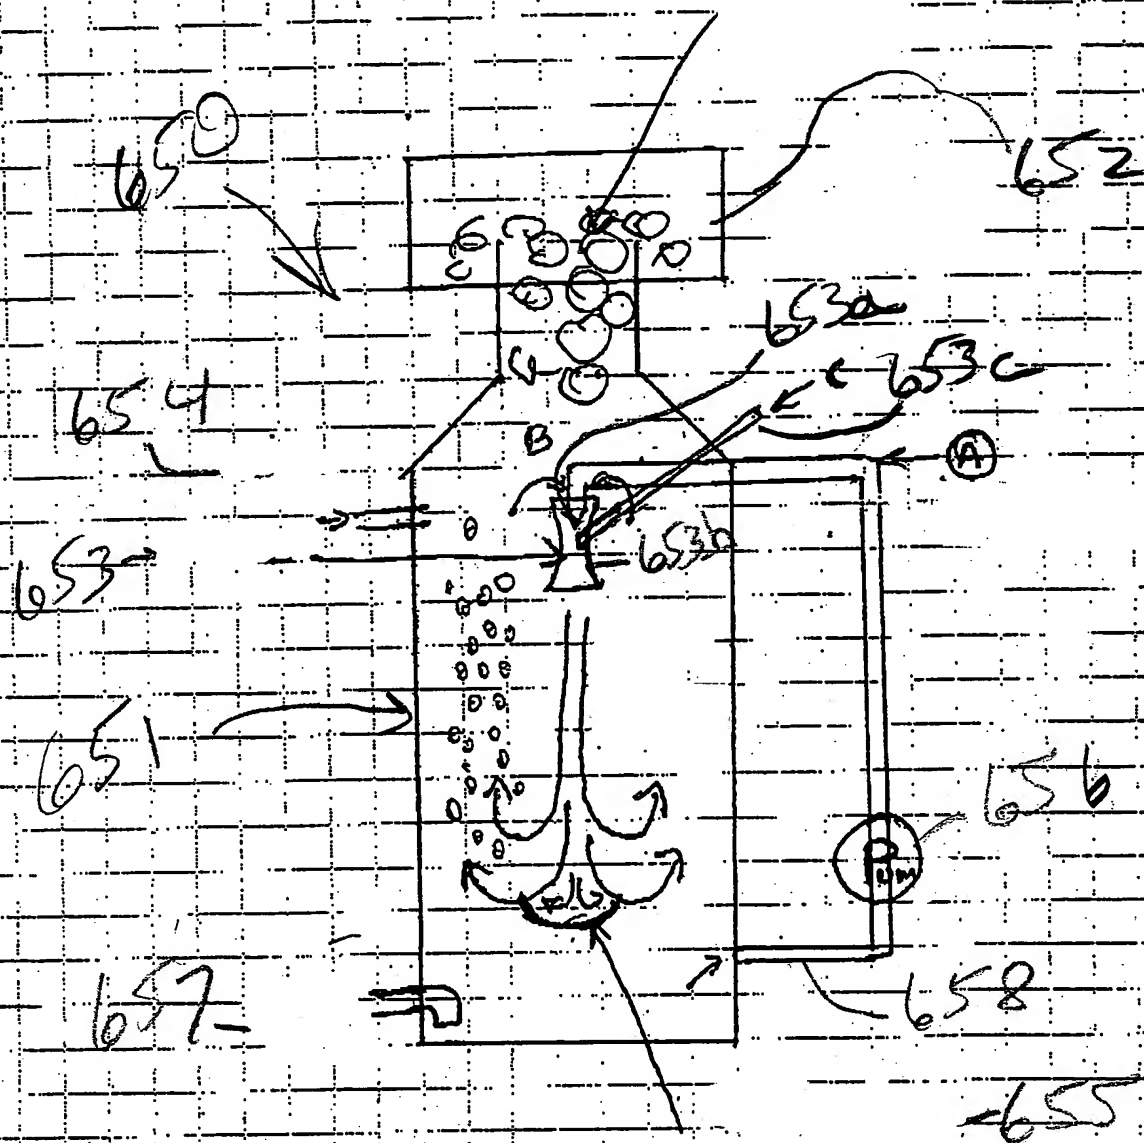 650
652
653a
653c
654
B
A
653
653b
651
656
Pum
657
658
655